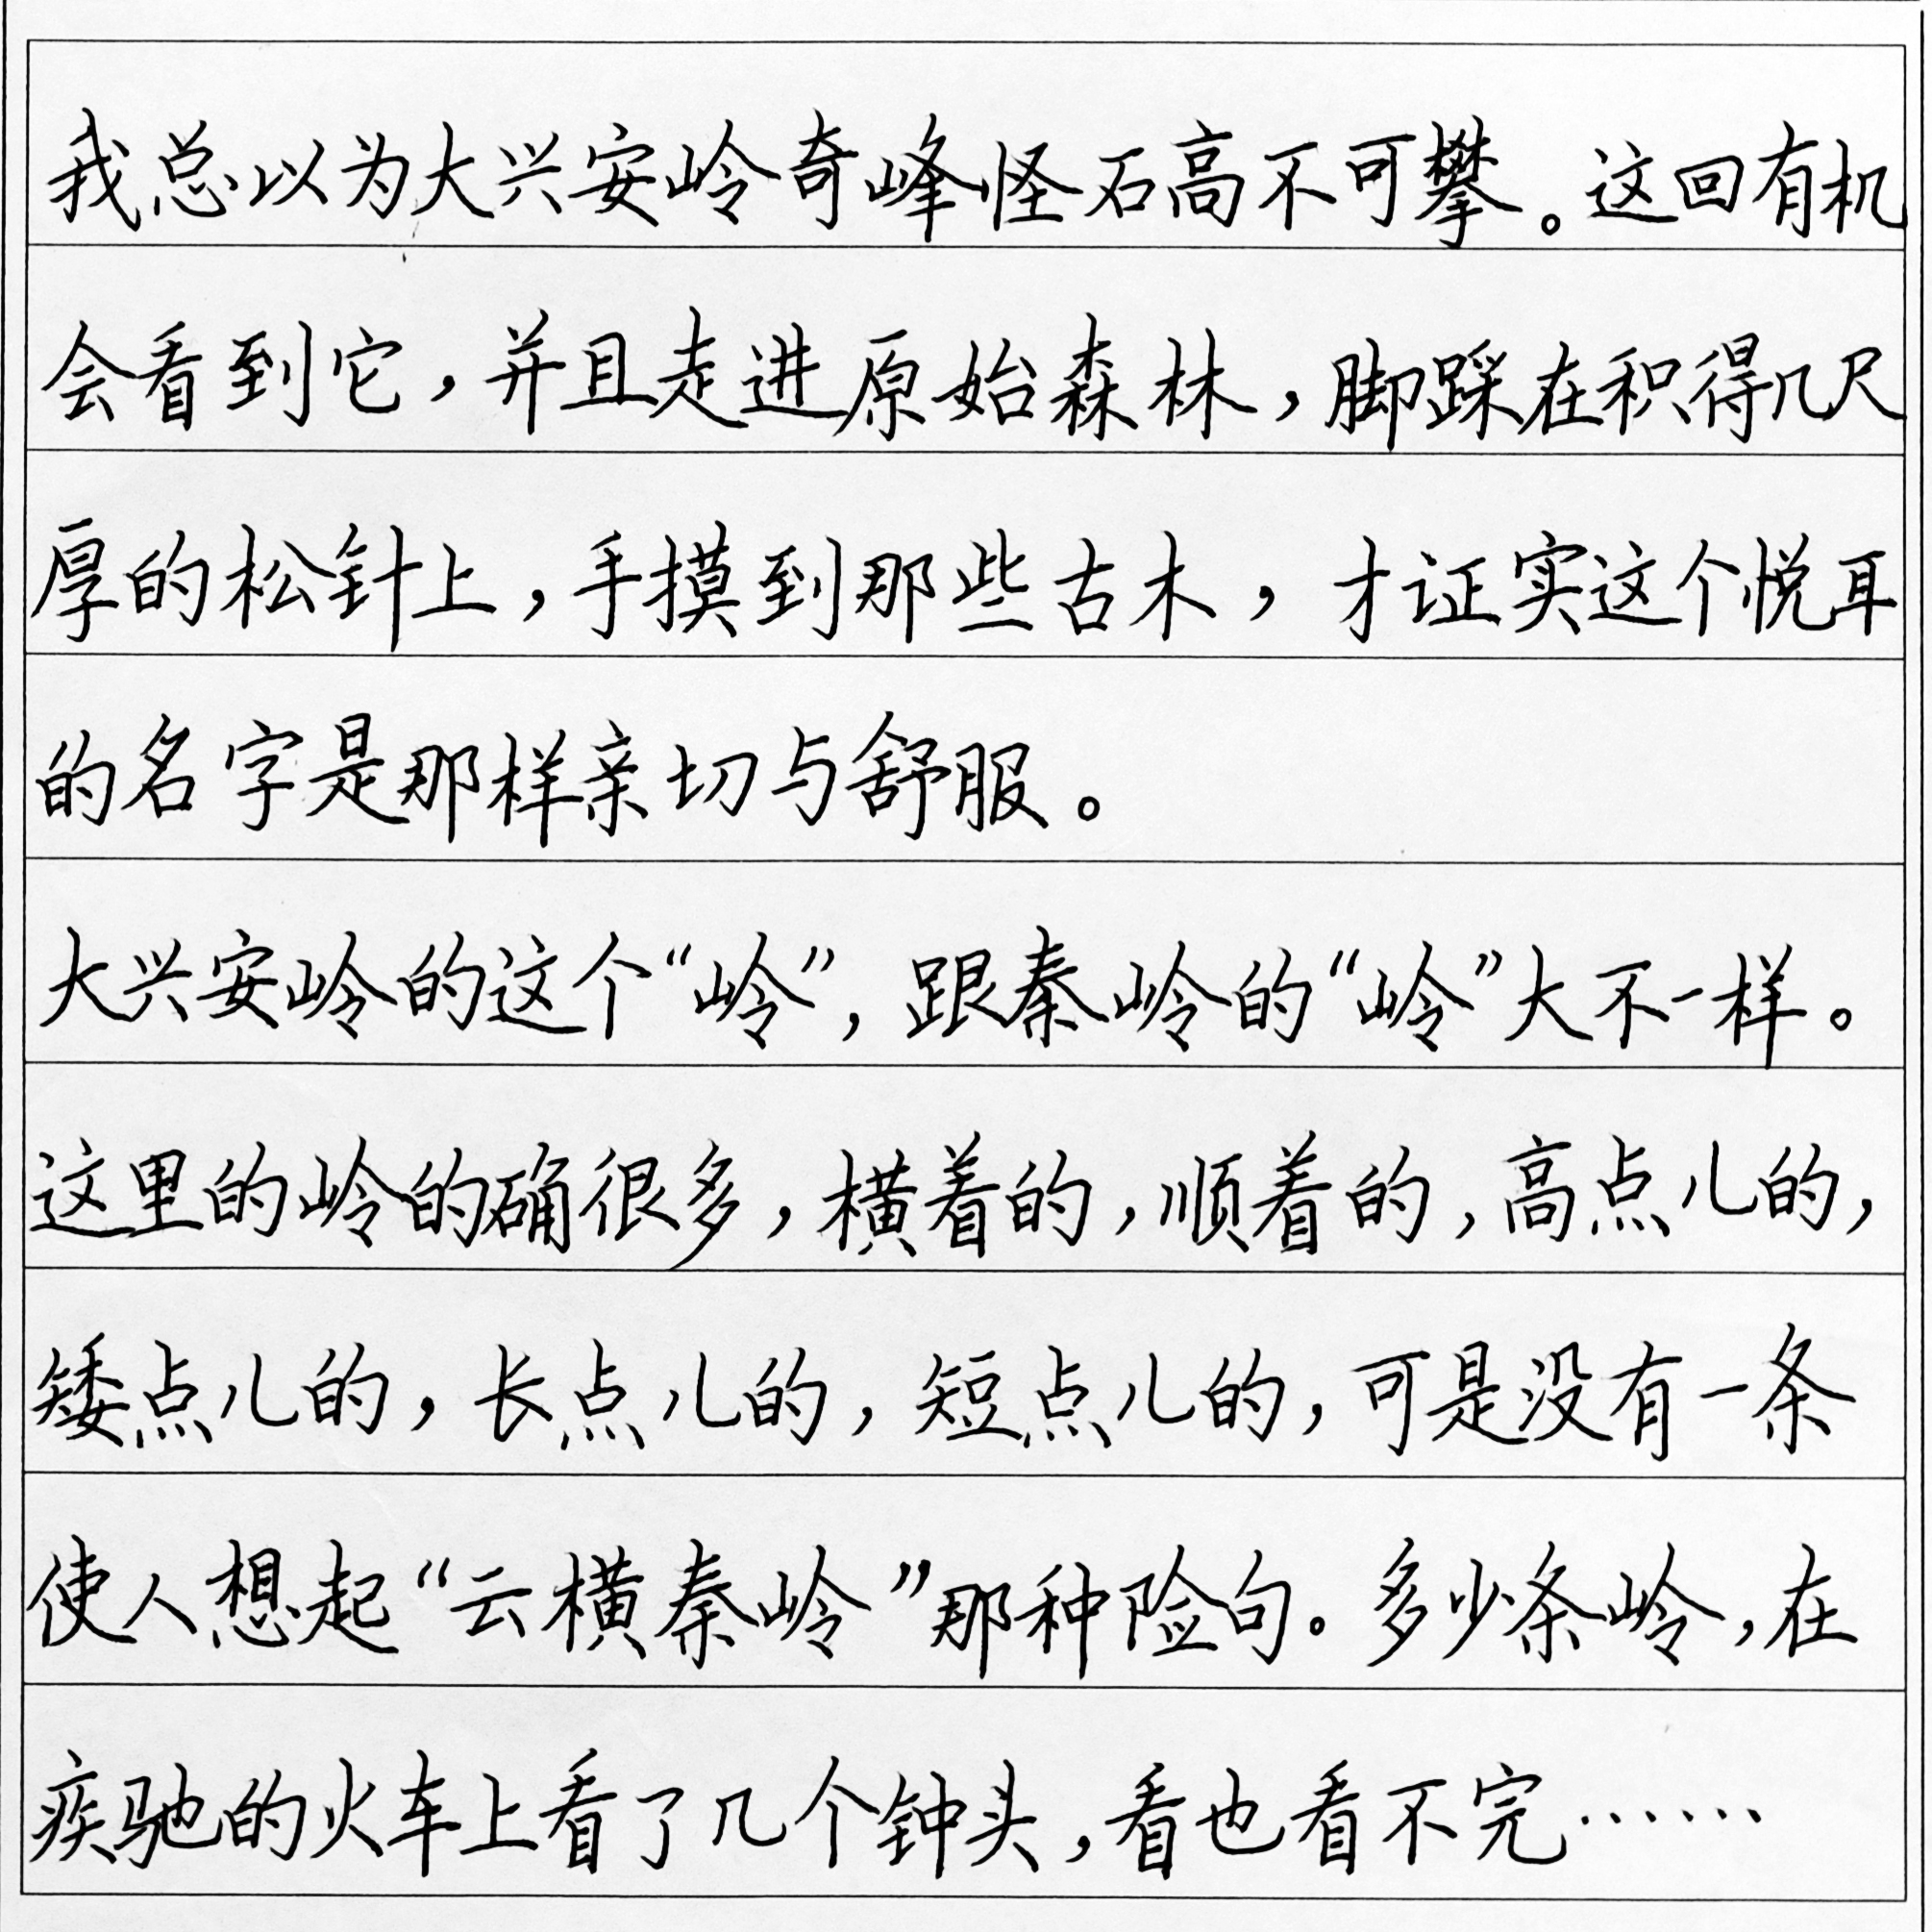 我总以为大兴安岭奇峰怪石高不可攀。这回有机
会看到它，并且走进原始森林，脚踩在积得几尺
厚的松针上，手摸到那些古木，才证实这个悦耳
的名字是那样亲切与舒服。
大兴安岭的这个“岭”，跟秦岭的“岭”大不一样。
这里的岭的确很多，横着的，顺着的，高点儿的，
矮点儿的，长点儿的，短点儿的，可是没有一条
使人想起“云横秦岭”那种险句。多少条岭，在
疾驰的火车上看了几个钟头，看也看不完……